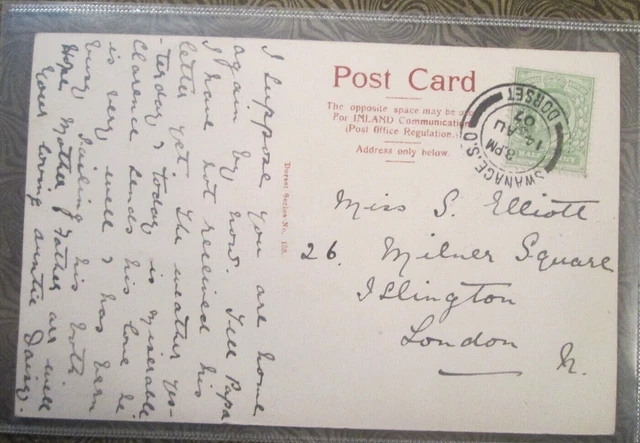 Post Card
The opposite space may be used
For INLAND Communication
(Post Office Regulation.)
Address only below.
SWANAGE. S.O
8 PM
14 AU
07
DORSET
Miss S. Elliott
26. Milner Square
Islington
London N.
Dorset Series No.
I suppose you are home
again by now. Tell Papa
I have not received his
letter yet. The weather yes-
-terday & today is miserable
Clarence sends his love he
is very well & has been
busy sailing his
Hope Mother & Father are well
Your loving auntie Daisy.